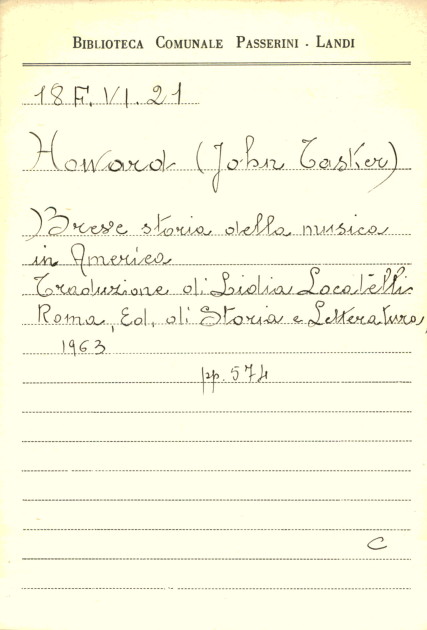 BIBLIOTECA COMUNALE PASSERINI - LANDI
18 F. VI. 21
Howard (John Tasker)
Breve storia della musica
in America
Traduzione di Lidia Locatelli
Roma, Ed. di Storia e Letteratura,
1963
pp. 574
C